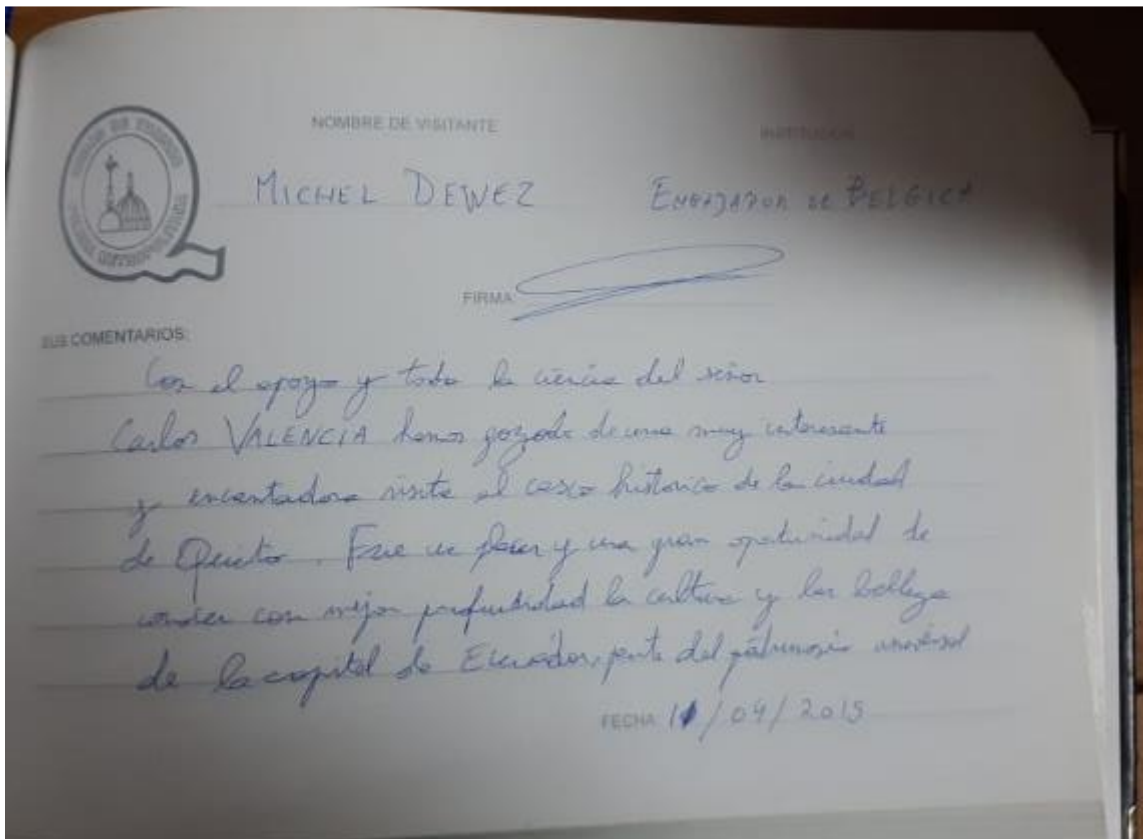 NOMBRE DE VISITANTE
INSTITUCION
MICHEL DEWEZ
EMBAJADOR DE BELGICA
FIRMA:
SUS COMENTARIOS:
Con el apoyo y toda la ciencia del señor
Carlos VALENCIA hemos gozado de una muy interesante
y encantadora visita al casco historico de la ciudad
de Quito. Fue un placer y una gran oportunidad de
conocer con mejor profundidad la cultura y las belleza
de la capital de Ecuador, parte del patrimonio universal
FECHA: 11/04/2015